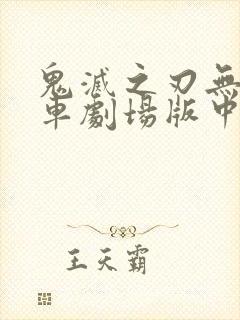 鬼滅之刃無
車劇場版中
王天霸